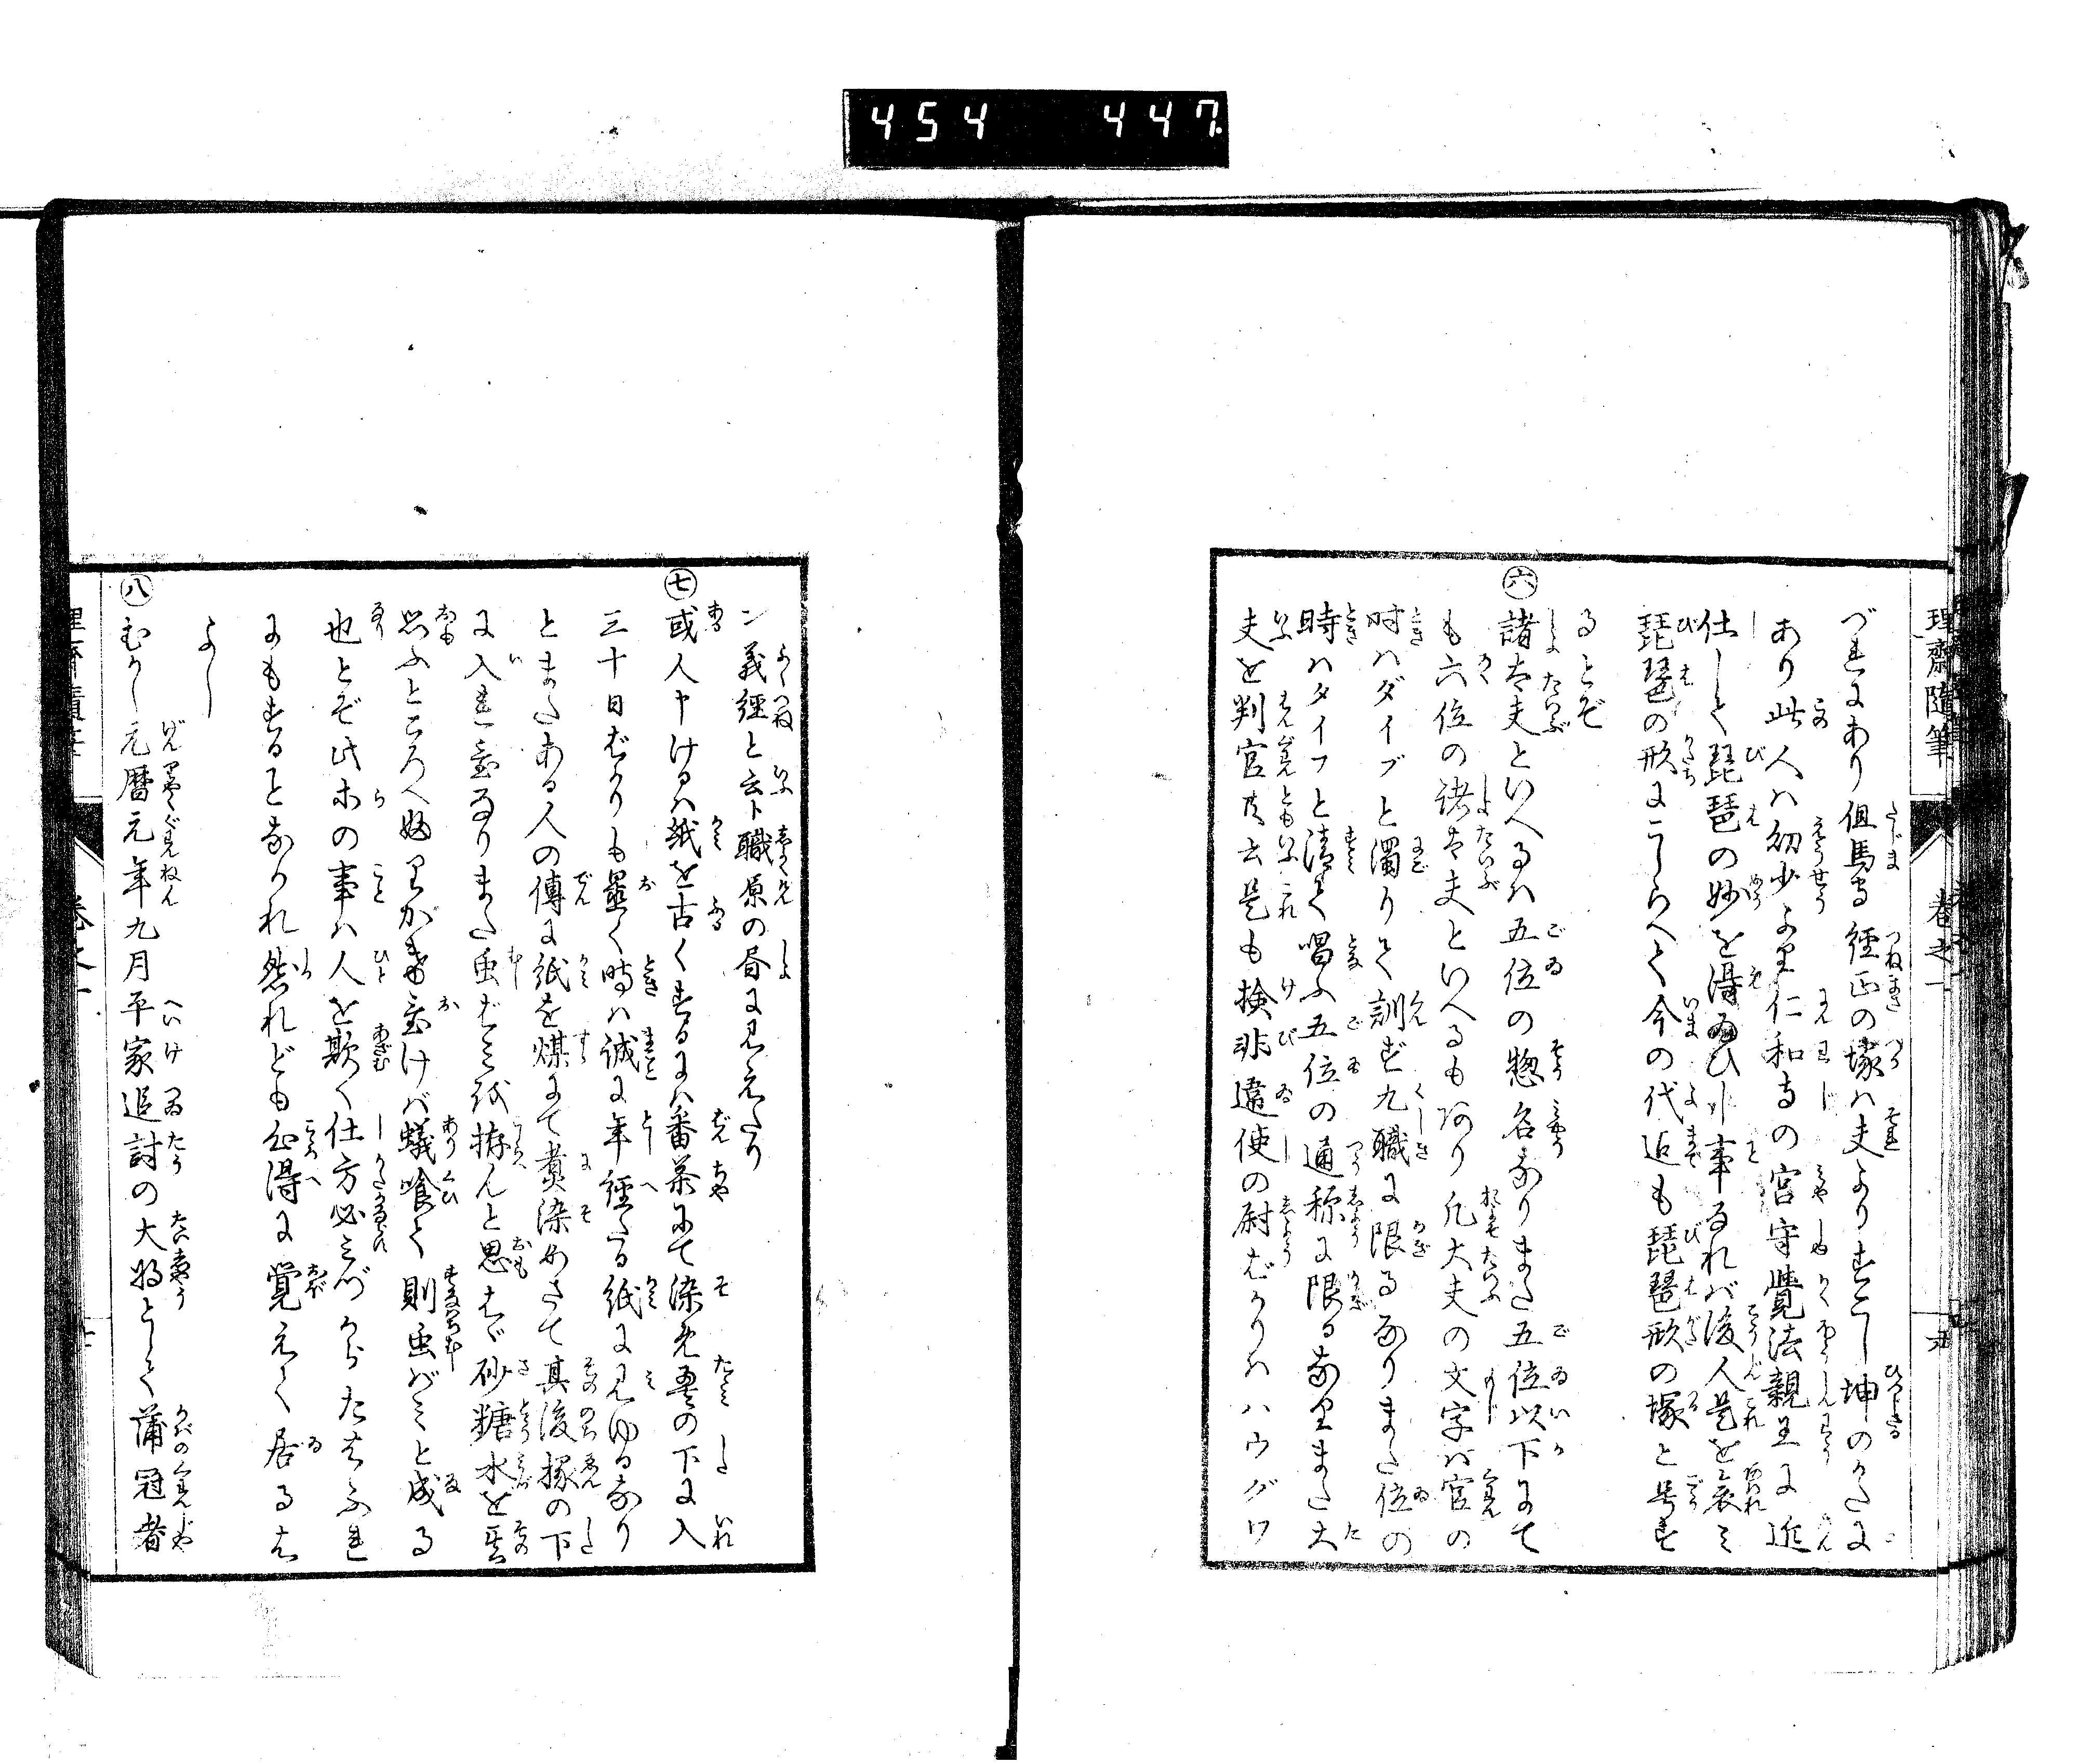 454 447
理齋隨筆 卷之一 九
づれにあり但馬守経正の塚ハ夫よりすこし坤のかたに
あり此人ハ幼少より仁和寺の宮守覺法親王に近
仕して琵琶の妙を得給ひし事なれバ後人是を哀ミ
琵琶の形にこしらへて今の代迄も琵琶形の塚と号す
るとぞ
六 諸太夫といへるハ五位の惣名なりまた五位以下にて
も六位の諸太夫といへるもあり凡大夫の文字ハ官の
時ハダイブと濁りて訓ず九職に限るなりまた位の
時ハタイフと清て唱ふ五位の通称に限るなりまた大
夫を判官共云是も検非違使の尉ばかりハハウグワ
ン義經と云ト職原の昏に見えたり
七 或人申けるハ紙を古くするにハ番茶にて染め畳の下に入
三十日ばかりも置く時ハ誠に年経たる紙に見ゆるなり
とまたある人の傳に紙を煤にて煮染めさて其後椽の下
に入れ置なりまた虫ばミを拵んと思はゞ砂糖水を其
思ふところへ塗りおき置けバ蟻喰て則虫バミと成る
也とぞ此等の事ハ人を欺く仕方必ミづからたはふれ
にもすることなかれ然れども心得に覚えて居るは
よし
八 むかし元暦元年九月平家追討の大将として蒲冠者